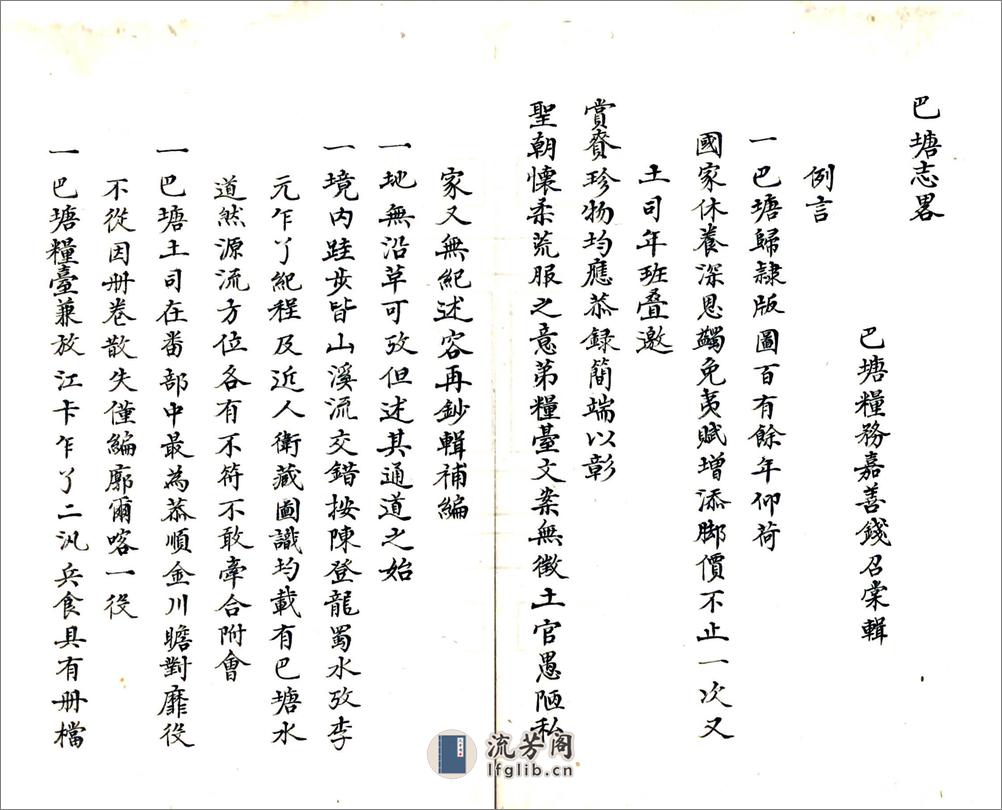 巴塘志畧
巴塘糧務嘉善錢召棠輯
例言
一巴塘歸隷版圖百有餘年仰荷
國家休養深恩蠲免夷賦增添脚價不止一次又
土司年班叠邀
賞賚珍物均應恭録簡端以彰
聖朝懷柔荒服之意第糧臺文案無徵土官愚陋私
家又無紀述容再鈔輯補編
一地無沿革可攷但述其通道之始
一境内跬步皆山溪流交錯按陳登龍蜀水攷李
元乍丫紀程及近人衛藏圖識均載有巴塘水
道然源流方位各有不符不敢牽合附會
一巴塘土司在畨部中最為恭順金川瞻對靡役
不從因册卷散失僅編廓爾喀一役
一巴塘糧臺兼放江卡乍丫二汛兵食具有册檔
流芳阁
lfglib.cn